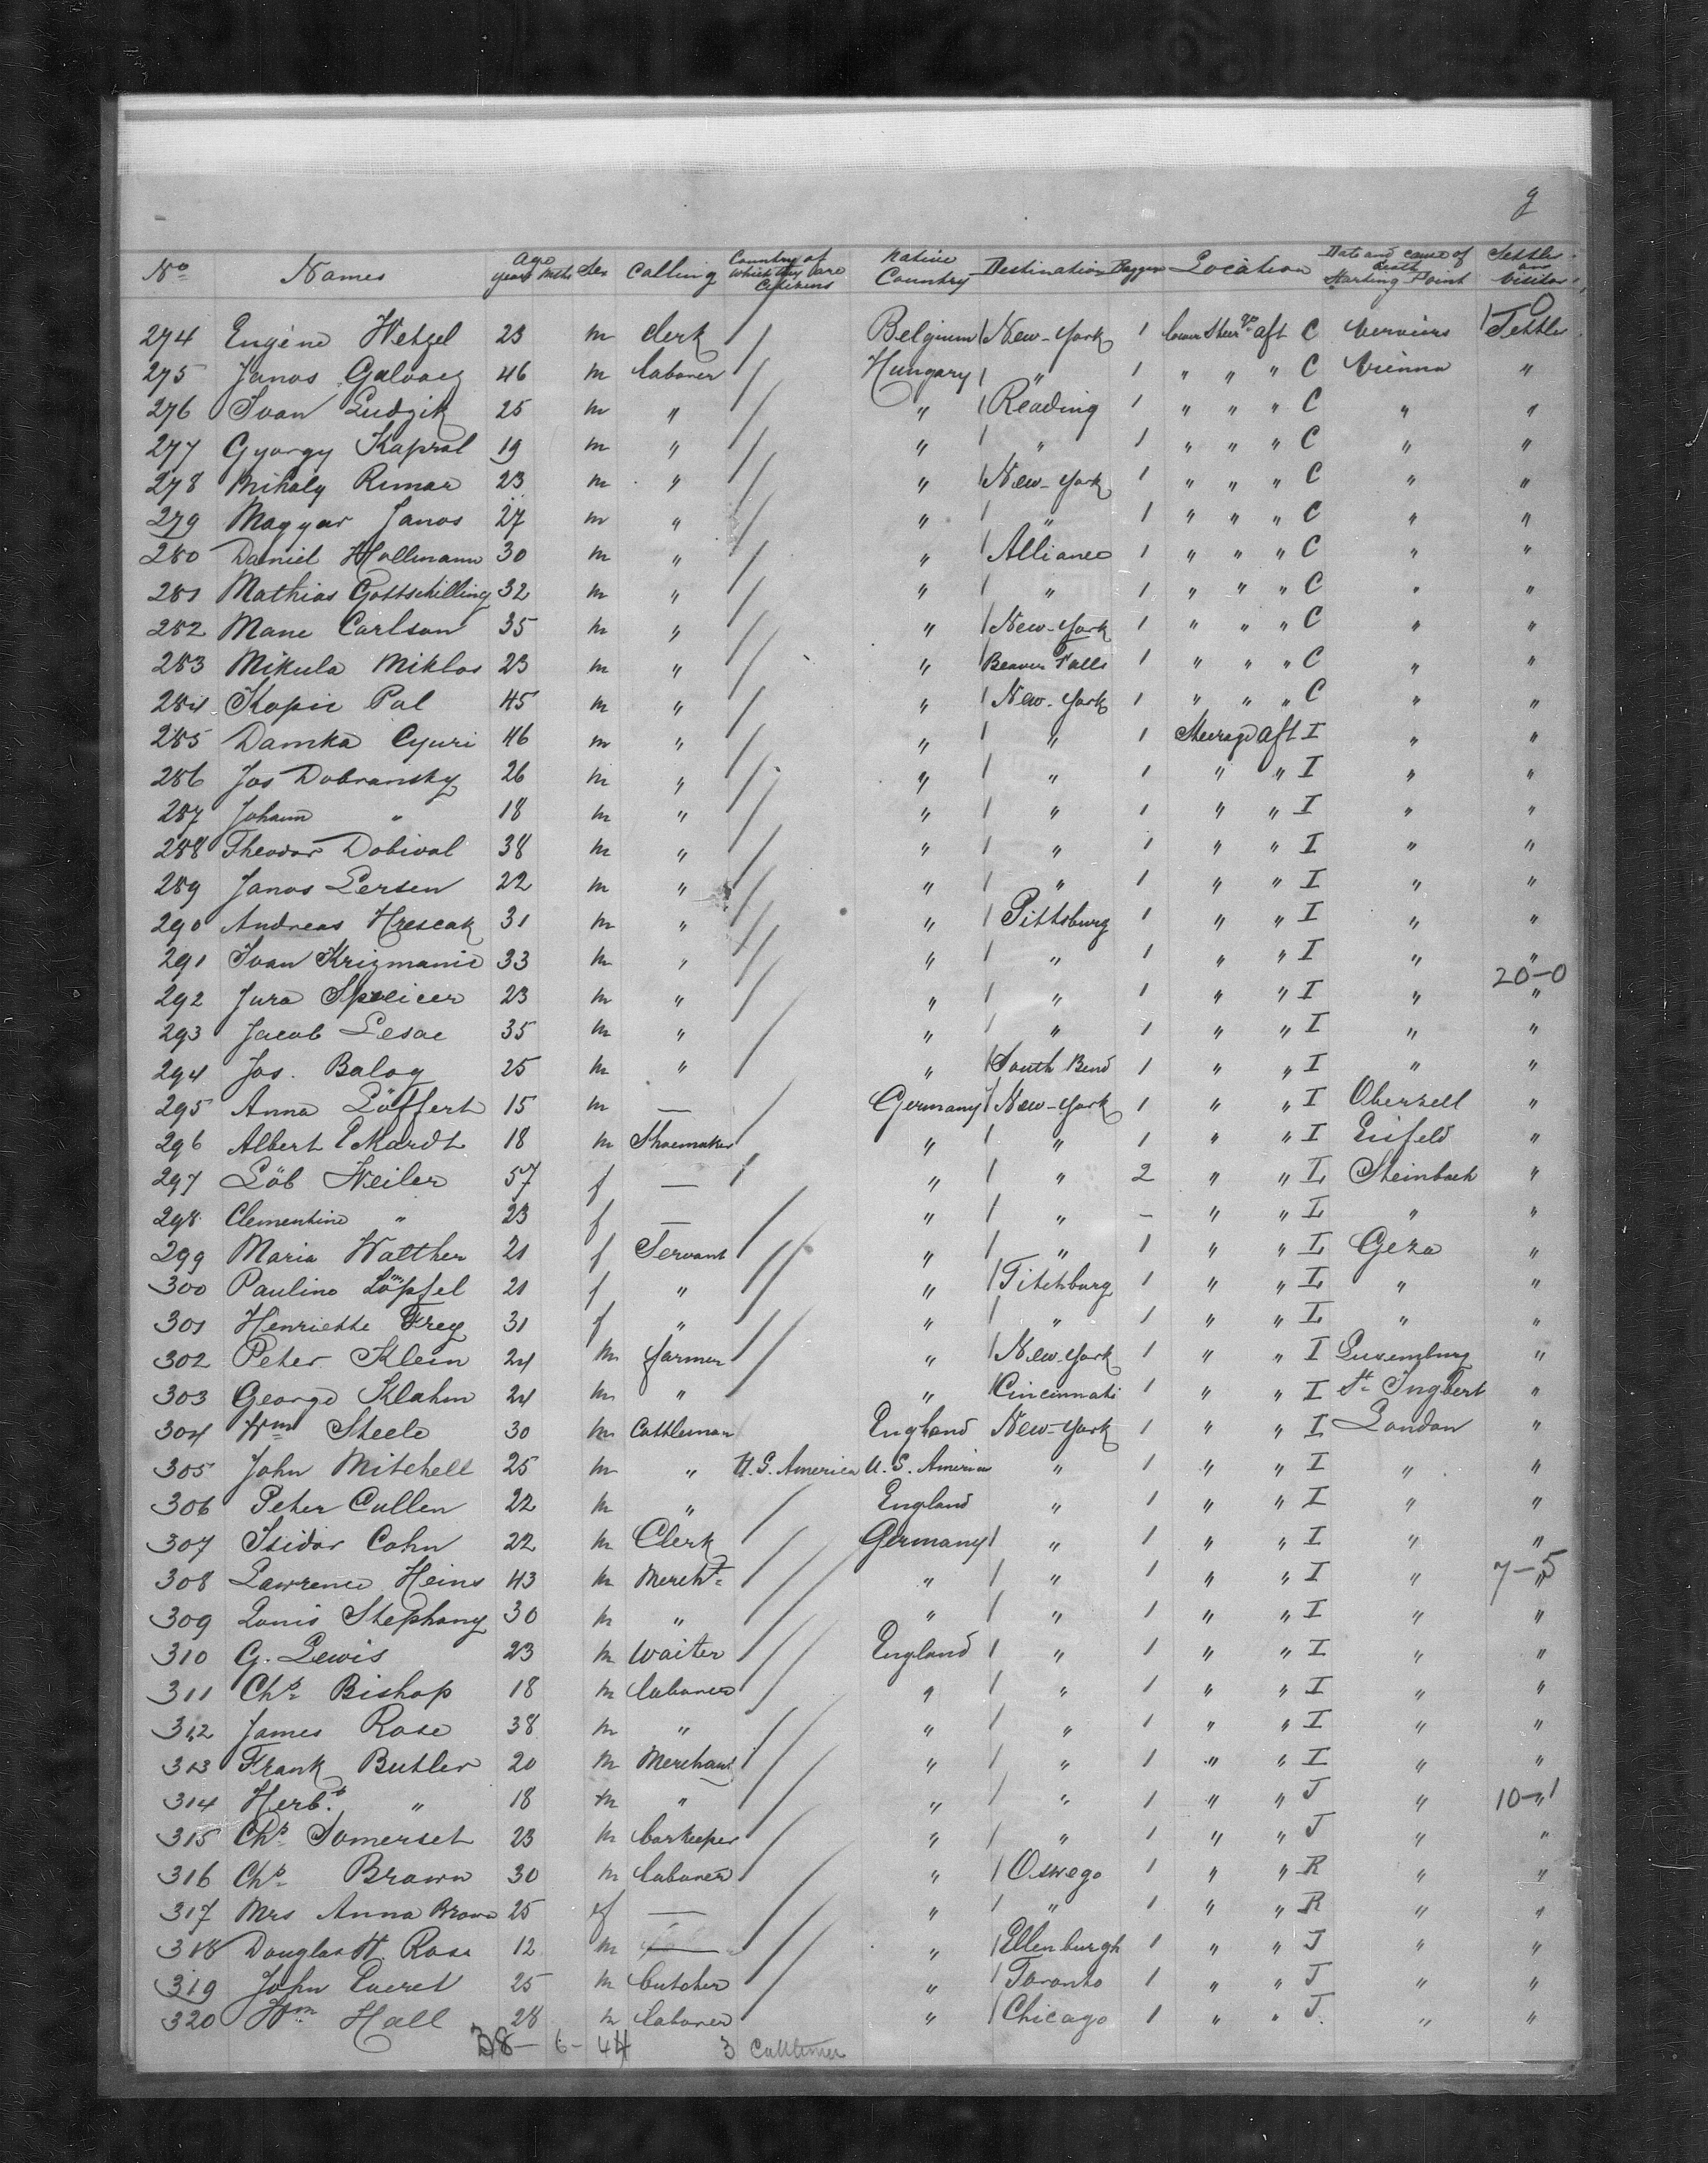 9
No Names Age years mths Sex Calling Country of which they are Citizens Native Country Destination Location Date and cause of death Starting Point Settler or Visitor
274 Eugène Wetzel 23 m Clerk / Belgium / New-York 1 Lower Steer ge aft C Verviers Settler
275 Janos 46 m laborer / Hungary / " 1 " " " C Vienna "
276 Ivan Ludzik 25 m " / " / Reading 1 " " " C " "
277 Gyorgy Kapral 19 m " / " / " 1 " " " C " "
278 Mihaly Rimar 23 m " / " / New-York 1 " " " C " "
279 Magyar Janos 27 m " / " / " 1 " " " C " "
280 Daniel Hollmann 30 m " / " / Alliance 1 " " " C " "
281 Mathias Gottschilling 32 m " / " / " 1 " " " C " "
282 Mane Carlson 35 m " / " / New-York 1 " " " C " "
283 Mikula Miklos 23 m " / " / Beaver Falls 1 " " " C " "
284 Kopic Pal 45 m " / " / New-York 1 " " " C " "
285 Damka Cyuri 46 m " / " / " 1 Steerage aft I " "
286 Jos Dobransky 26 m " / " / " 1 " " I " "
287 Johann " 18 m " / " / " 1 " " I " "
288 Theodor Dobival 38 m " / " / " 1 " " I " "
289 Janos Lersen 22 m " / " / " 1 " " I " "
290 Andreas Hrescak 31 m " / " / Pittsburg 1 " " I " "
291 Ivan Krizmanic 33 m " / " / " 1 " " I " "
20-0
292 Jura 23 m " / " / " 1 " " I " "
293 Jacob Lesac 35 m " / " / " 1 " " I " "
294 Jos. Balog 25 m " / " / South Bend 1 " " I " "
295 Anna Löffert 15 m — / Germany / New-York 1 " " I Oberzell "
296 Albert Ekardt 18 m Shoemaker / " / " 1 " " I Eisfeld "
297 Löb Weiler 57 f — / " / " 2 " " L Steinbach "
298 Clementine " 23 f — / " / " – " " L " "
299 Maria Walther 21 f Servant / " / " 1 " " L Gera "
300 Pauline 21 f " / " / Fitchburg 1 " " L " "
301 Henriette Frey 31 f " / " / " 1 " " L " "
302 Peter Klein 24 m farmer / " / New-York 1 " " I Luxemburg "
303 George Klahm 24 m " / " / Cincinnati 1 " " I St Ingbert "
304 Wm Steele 30 m Cattleman England New-York 1 " " I London "
305 John Mitchell 25 m " U.S. America U.S. America " 1 " " I " "
306 Peter Cullen 22 m " / England " 1 " " I " "
307 Isidor Cohn 22 m Clerk / Germany / " 1 " " I " "
308 Lawrence Heins 43 m Mercht / " / " 1 " " I " "
7-5
309 Louis Stephany 30 m " / " / " 1 " " I " "
310 G. Lewis 23 m Waiter / England / " 1 " " I " "
311 Chs Bishop 18 m laborer / " / " 1 " " I " "
312 James Rose 38 m " / " / " 1 " " I " "
313 Frank Butler 20 m Merchant / " / " 1 " " I " "
314 Herbt " 18 m " / " / " 1 " " J " "
10-1
315 Chs Somerset 23 m barkeeper / " / " 1 " " J " "
316 Chs Brown 30 m laborer / " / Oswego 1 " " R " "
317 Mrs Anna Brown 25 f — / " / " 1 " " R " "
318 Douglas H Rose 12 m — / " / Ellenburgh 1 " " J " "
319 John Everet 25 m butcher / " / Toronto 1 " " J " "
320 Wm Hall 28 m laborer / " / Chicago 1 " " J " "
38- 6- 44 3 Cattlemen